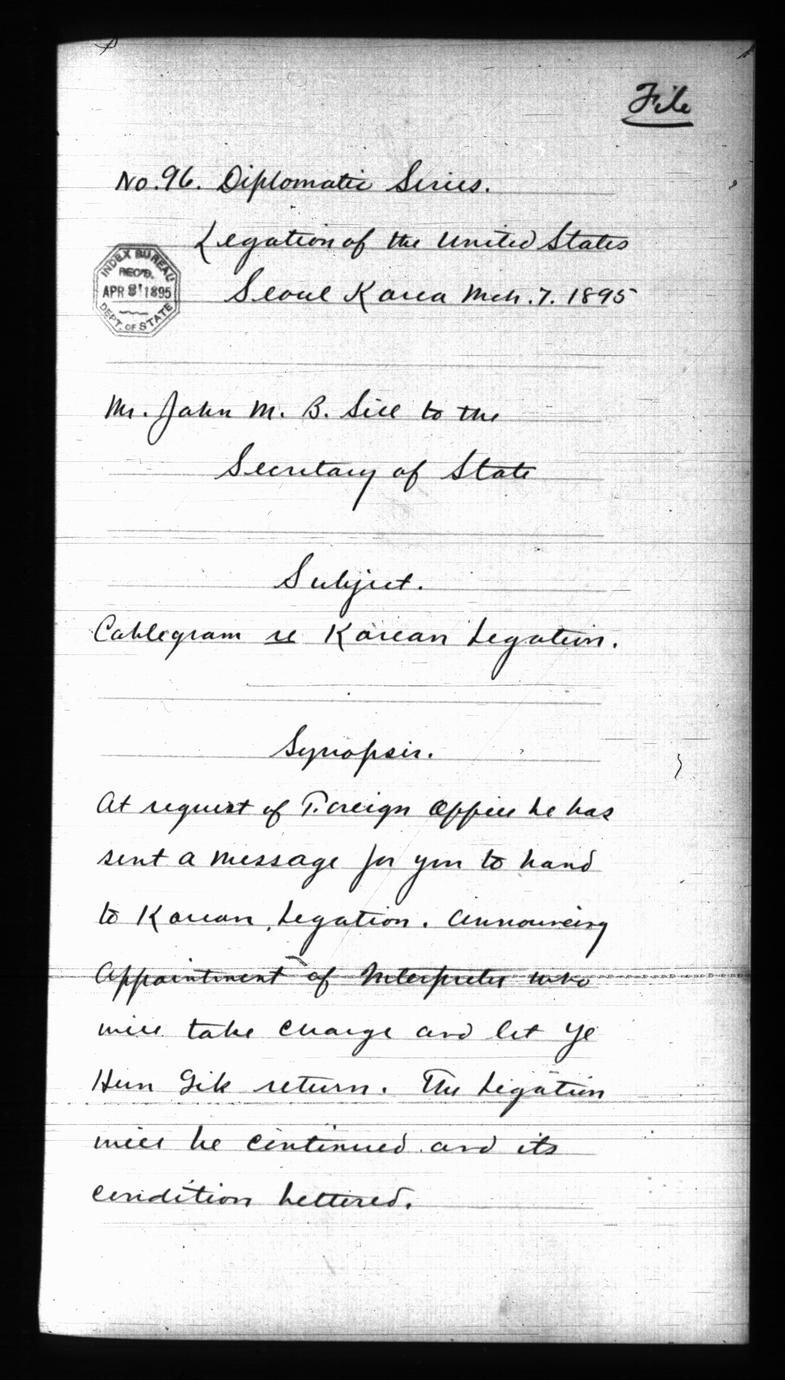 File
No. 96. Diplomatic Series.
Legation of the United States
INDEX BUREAU
REC'D.
APR 81 1895
DEPT. OF STATE
Seoul Korea Mch. 7. 1895
Mr. John M. B. Sill to the
Secretary of State
Subject.
Cablegram re Korean Legation.
Synopsis.
At request of Foreign Office he has
sent a message for you to hand
to Korean Legation. Announcing
appointment of Interpreter who
will take charge and let Ye
Hun Gik return. The Legation
will be continued and its
condition bettered.